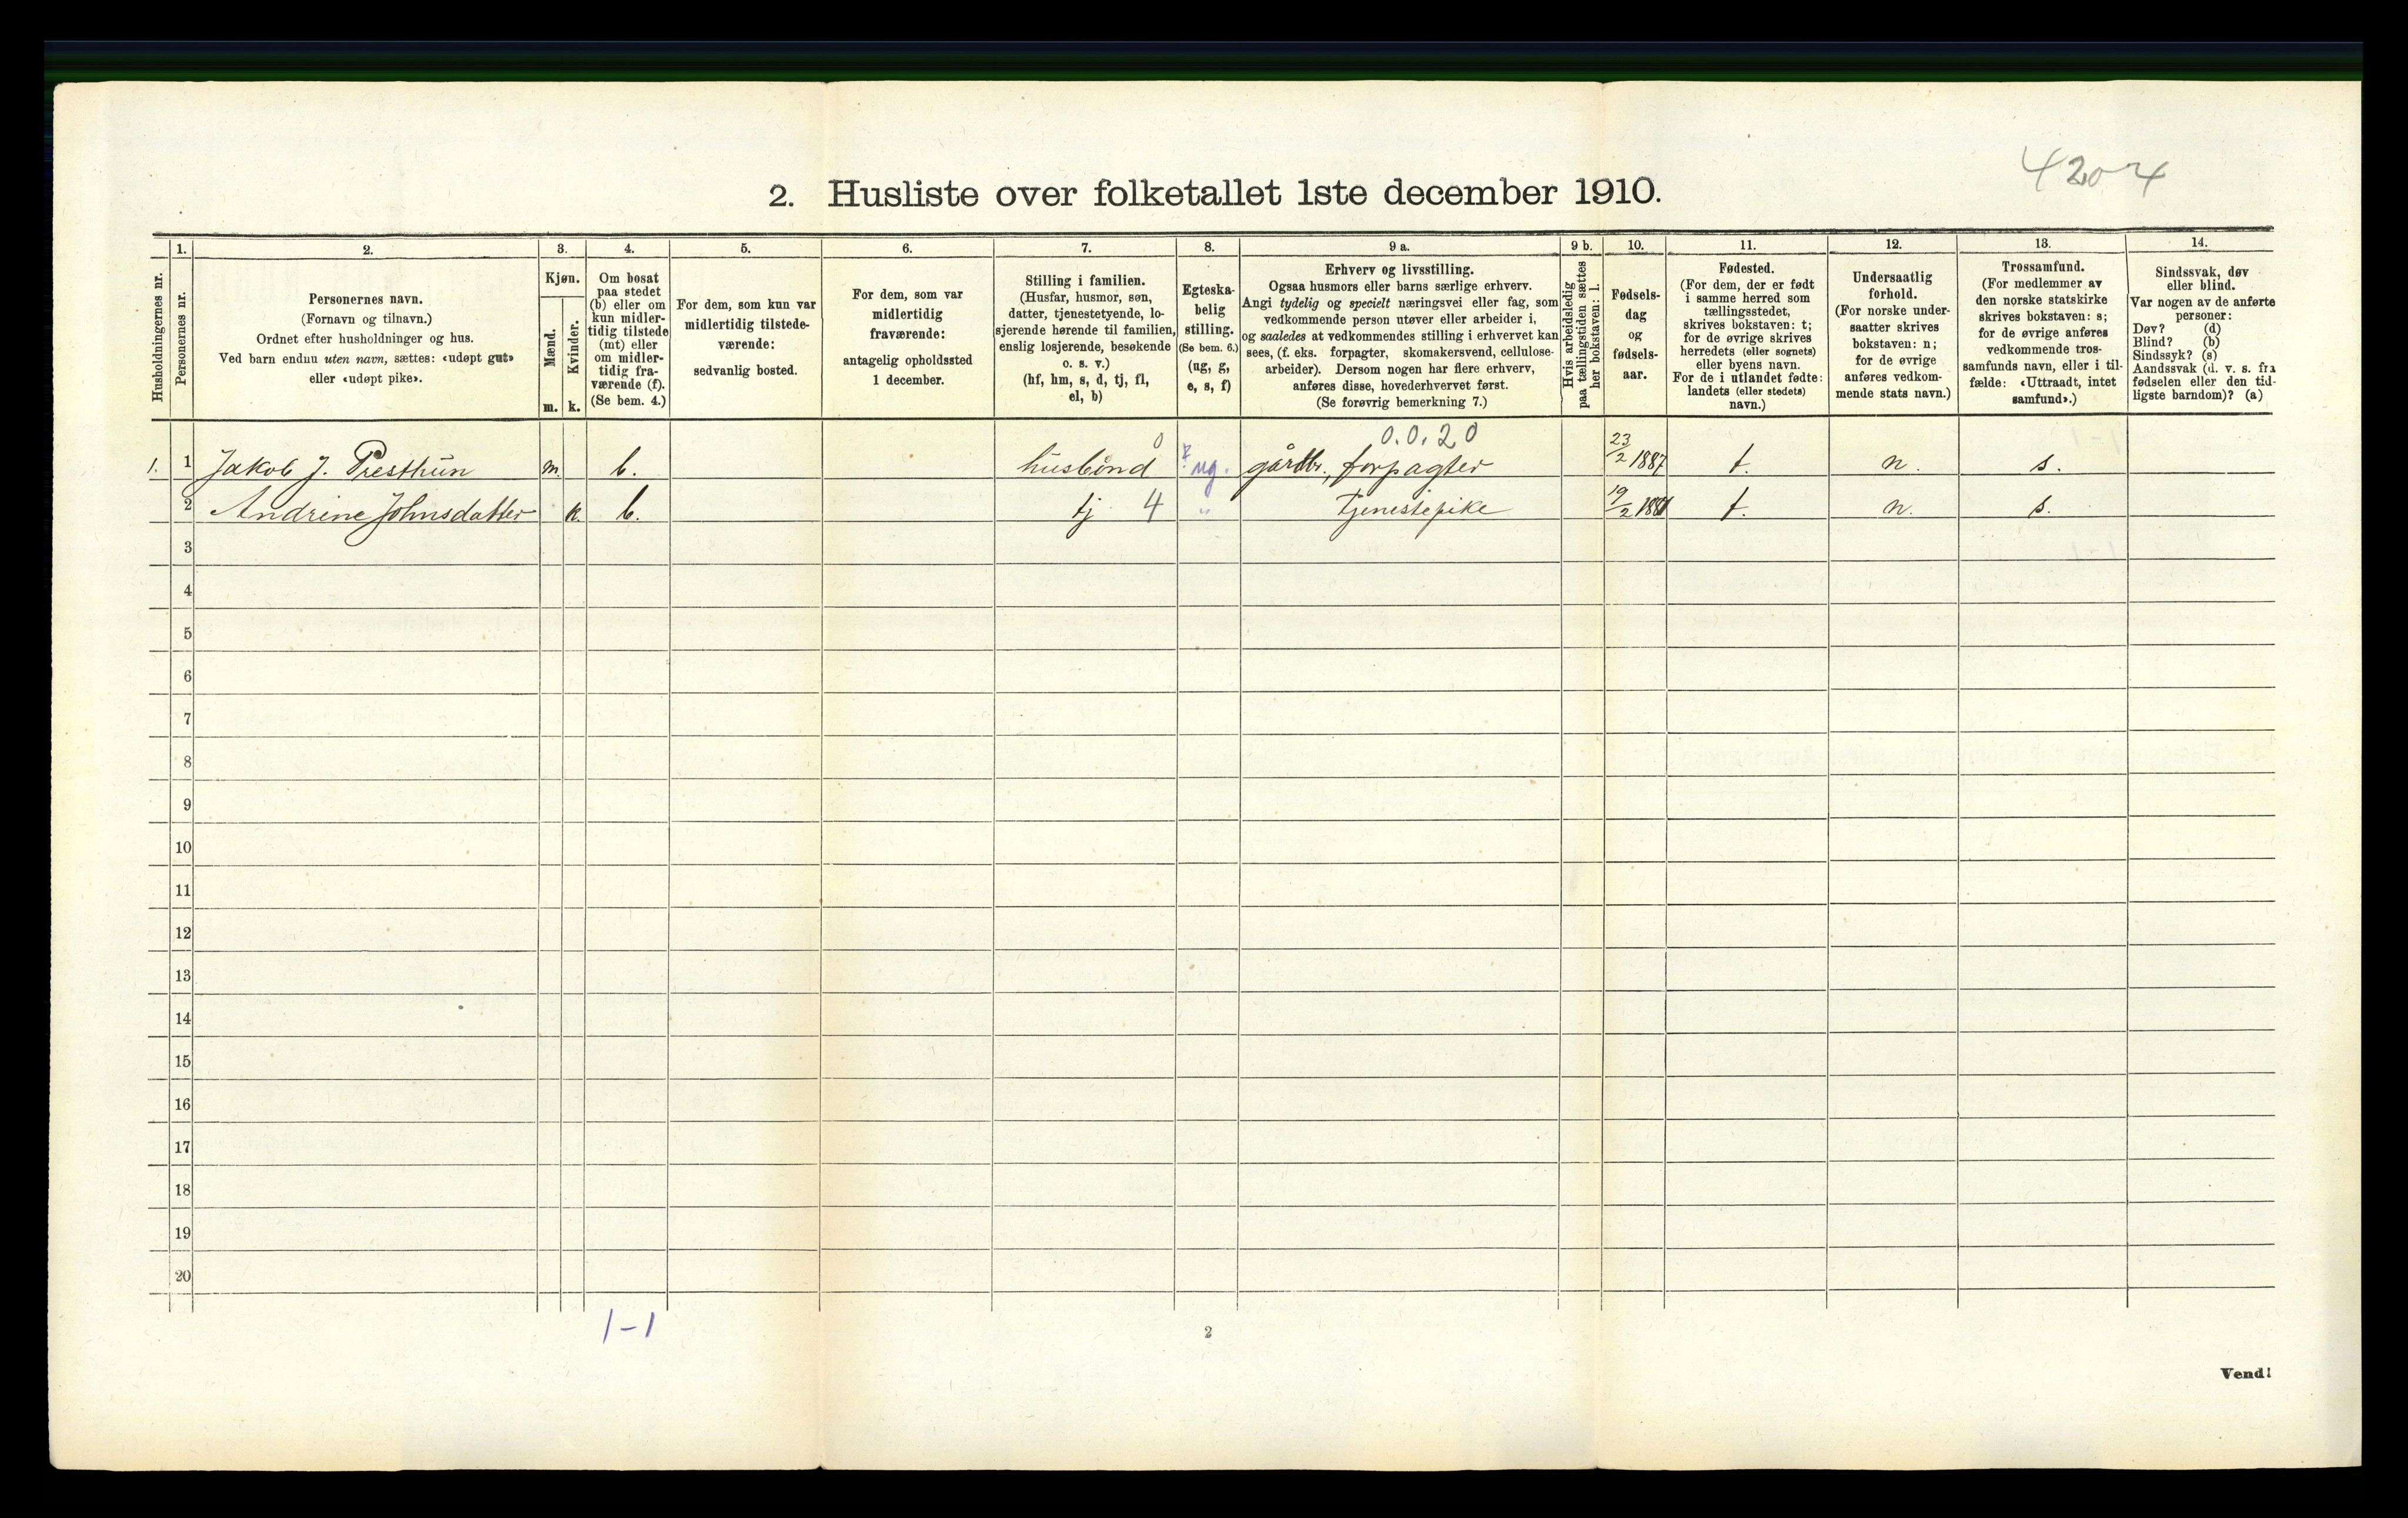 4204
2. Husliste over folketallet 1ste december 1910.
Husholdningernes nr.
1.
Personernes nr.
2.
Personernes navn.
(Fornavn og tilnavn.)
Ordnet efter husholdninger og hus.
Ved barn endnu uten navn, sættes: «udøpt gut»
eller «udøpt pike».
3.
Kjøn.
Mænd.
Kvinder.
m. k.
4.
Om bosat
paa stedet
(b) eller om
kun midler-
tidig tilstede
(mt) eller
om midler-
tidig fra-
værende (f).
(Se bem. 4.)
5.
For dem, som kun var
midlertidig tilstede-
værende:
sedvanlig bosted.
6.
For dem, som var
midlertidig
fraværende:
antagelig opholdssted
1 december.
7.
Stilling i familien.
(Husfar, husmor, søn,
datter, tjenestetyende, lo-
sjerende hørende til familien,
enslig losjerende, besøkende
o. s. v.)
(hf, hm, s, d, tj, fl,
el, b)
8.
Egteska-
belig
stilling.
(Se bem. 6.)
(ug, g,
e, s, f)
9 a.
Erhverv og livsstilling.
Ogsaa husmors eller barns særlige erhverv.
Angi tydelig og specielt næringsvei eller fag, som
vedkommende person utøver eller arbeider i,
og saaledes at vedkommendes stilling i erhvervet kan
sees, (f. eks. forpagter, skomakersvend, cellulose-
arbeider). Dersom nogen har flere erhverv,
anføres disse, hovederhvervet først.
(Se forøvrig bemerkning 7.)
9 b.
Hvis arbeidsledig
paa tællingstiden sættes
her bokstaven: l.
10.
Fødsels-
dag
og
fødsels-
aar.
11.
Fødested.
(For dem, der er født
i samme herred som
tællingsstedet,
skrives bokstaven: t;
for de øvrige skrives
herredets (eller sognets)
eller byens navn.
For de i utlandet fødte:
landets (eller stedets)
navn.)
12.
Undersaatlig
forhold.
(For norske under-
saatter skrives
bokstaven: n;
for de øvrige
anføres vedkom-
mende stats navn.)
13.
Trossamfund.
(For medlemmer av
den norske statskirke
skrives bokstaven: s;
for de øvrige anføres
vedkommende tros-
samfunds navn, eller i til-
fælde: «Uttraadt, intet
samfund».)
14.
Sindssvak, døv
eller blind.
Var nogen av de anførte
personer:
Døv? (d)
Blind? (b)
Sindssyk? (s)
Aandssvak (d. v. s. fra
fødselen eller den tid-
ligste barndom)? (a)
0 0.0.20
1. 1 Jakob J. Presthun m. b. husbond ug. gårdbr., forpagter 23/2 1887 t. n. s.
2 Andrine Johnsdatter k. b. tj 4 " Tjenestepike 19/2 1881 t. n. s.
3
4
5
6
7
8
9
10
11
12
13
14
15
16
17
18
19
20
1-1
2
Vend!